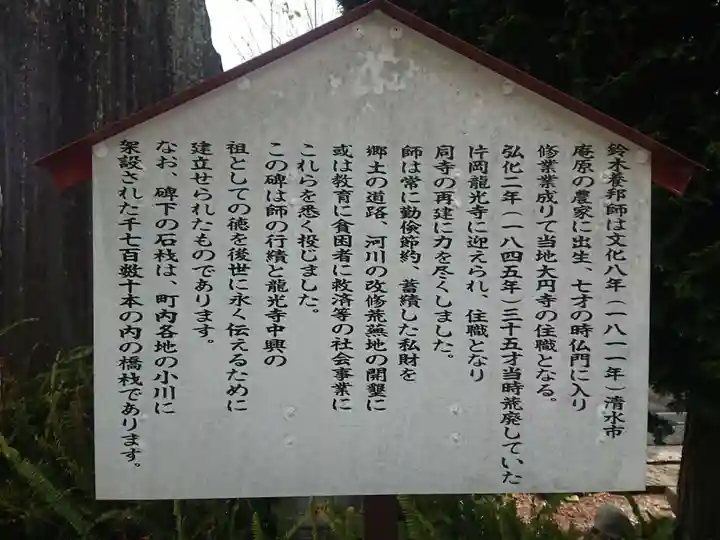 鈴木養邦師は文化八年（一八一一年）清水市
庵原の農家に出生、七才の時仏門に入り
修業業成りて当地大円寺の住職となる。
弘化二年（一八四五年）三十五才当時荒廃していた
片岡龍光寺に迎えられ、住職となり
同寺の再建に力を尽くしました。
師は常に勤倹節約、蓄績した私財を
郷土の道路、河川の改修荒蕪地の開墾に
或は教育に貧困者に救済等の社会事業に
これらを悉く投じました。
この碑は師の行績と龍光寺中興の
祖としての徳を後世に永く伝えるために
建立せられたものであります。
なお、碑下の石桟は、町内各地の小川に
架設された千七百数十本の内の橋桟であります。